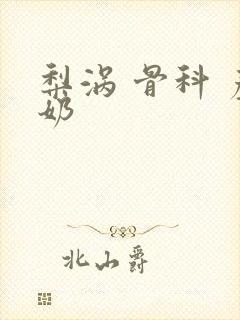 梨涡 骨科
奶
北山爵